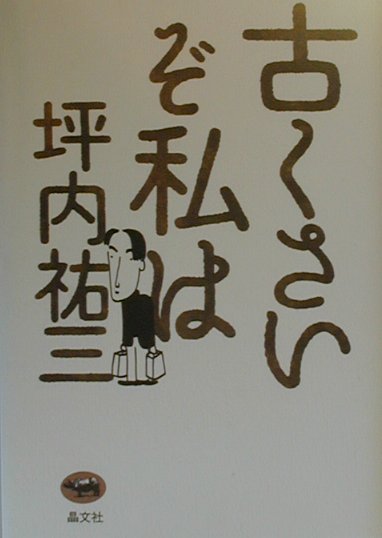 古くさい
ぞ私は
坪内祐三
晶文社